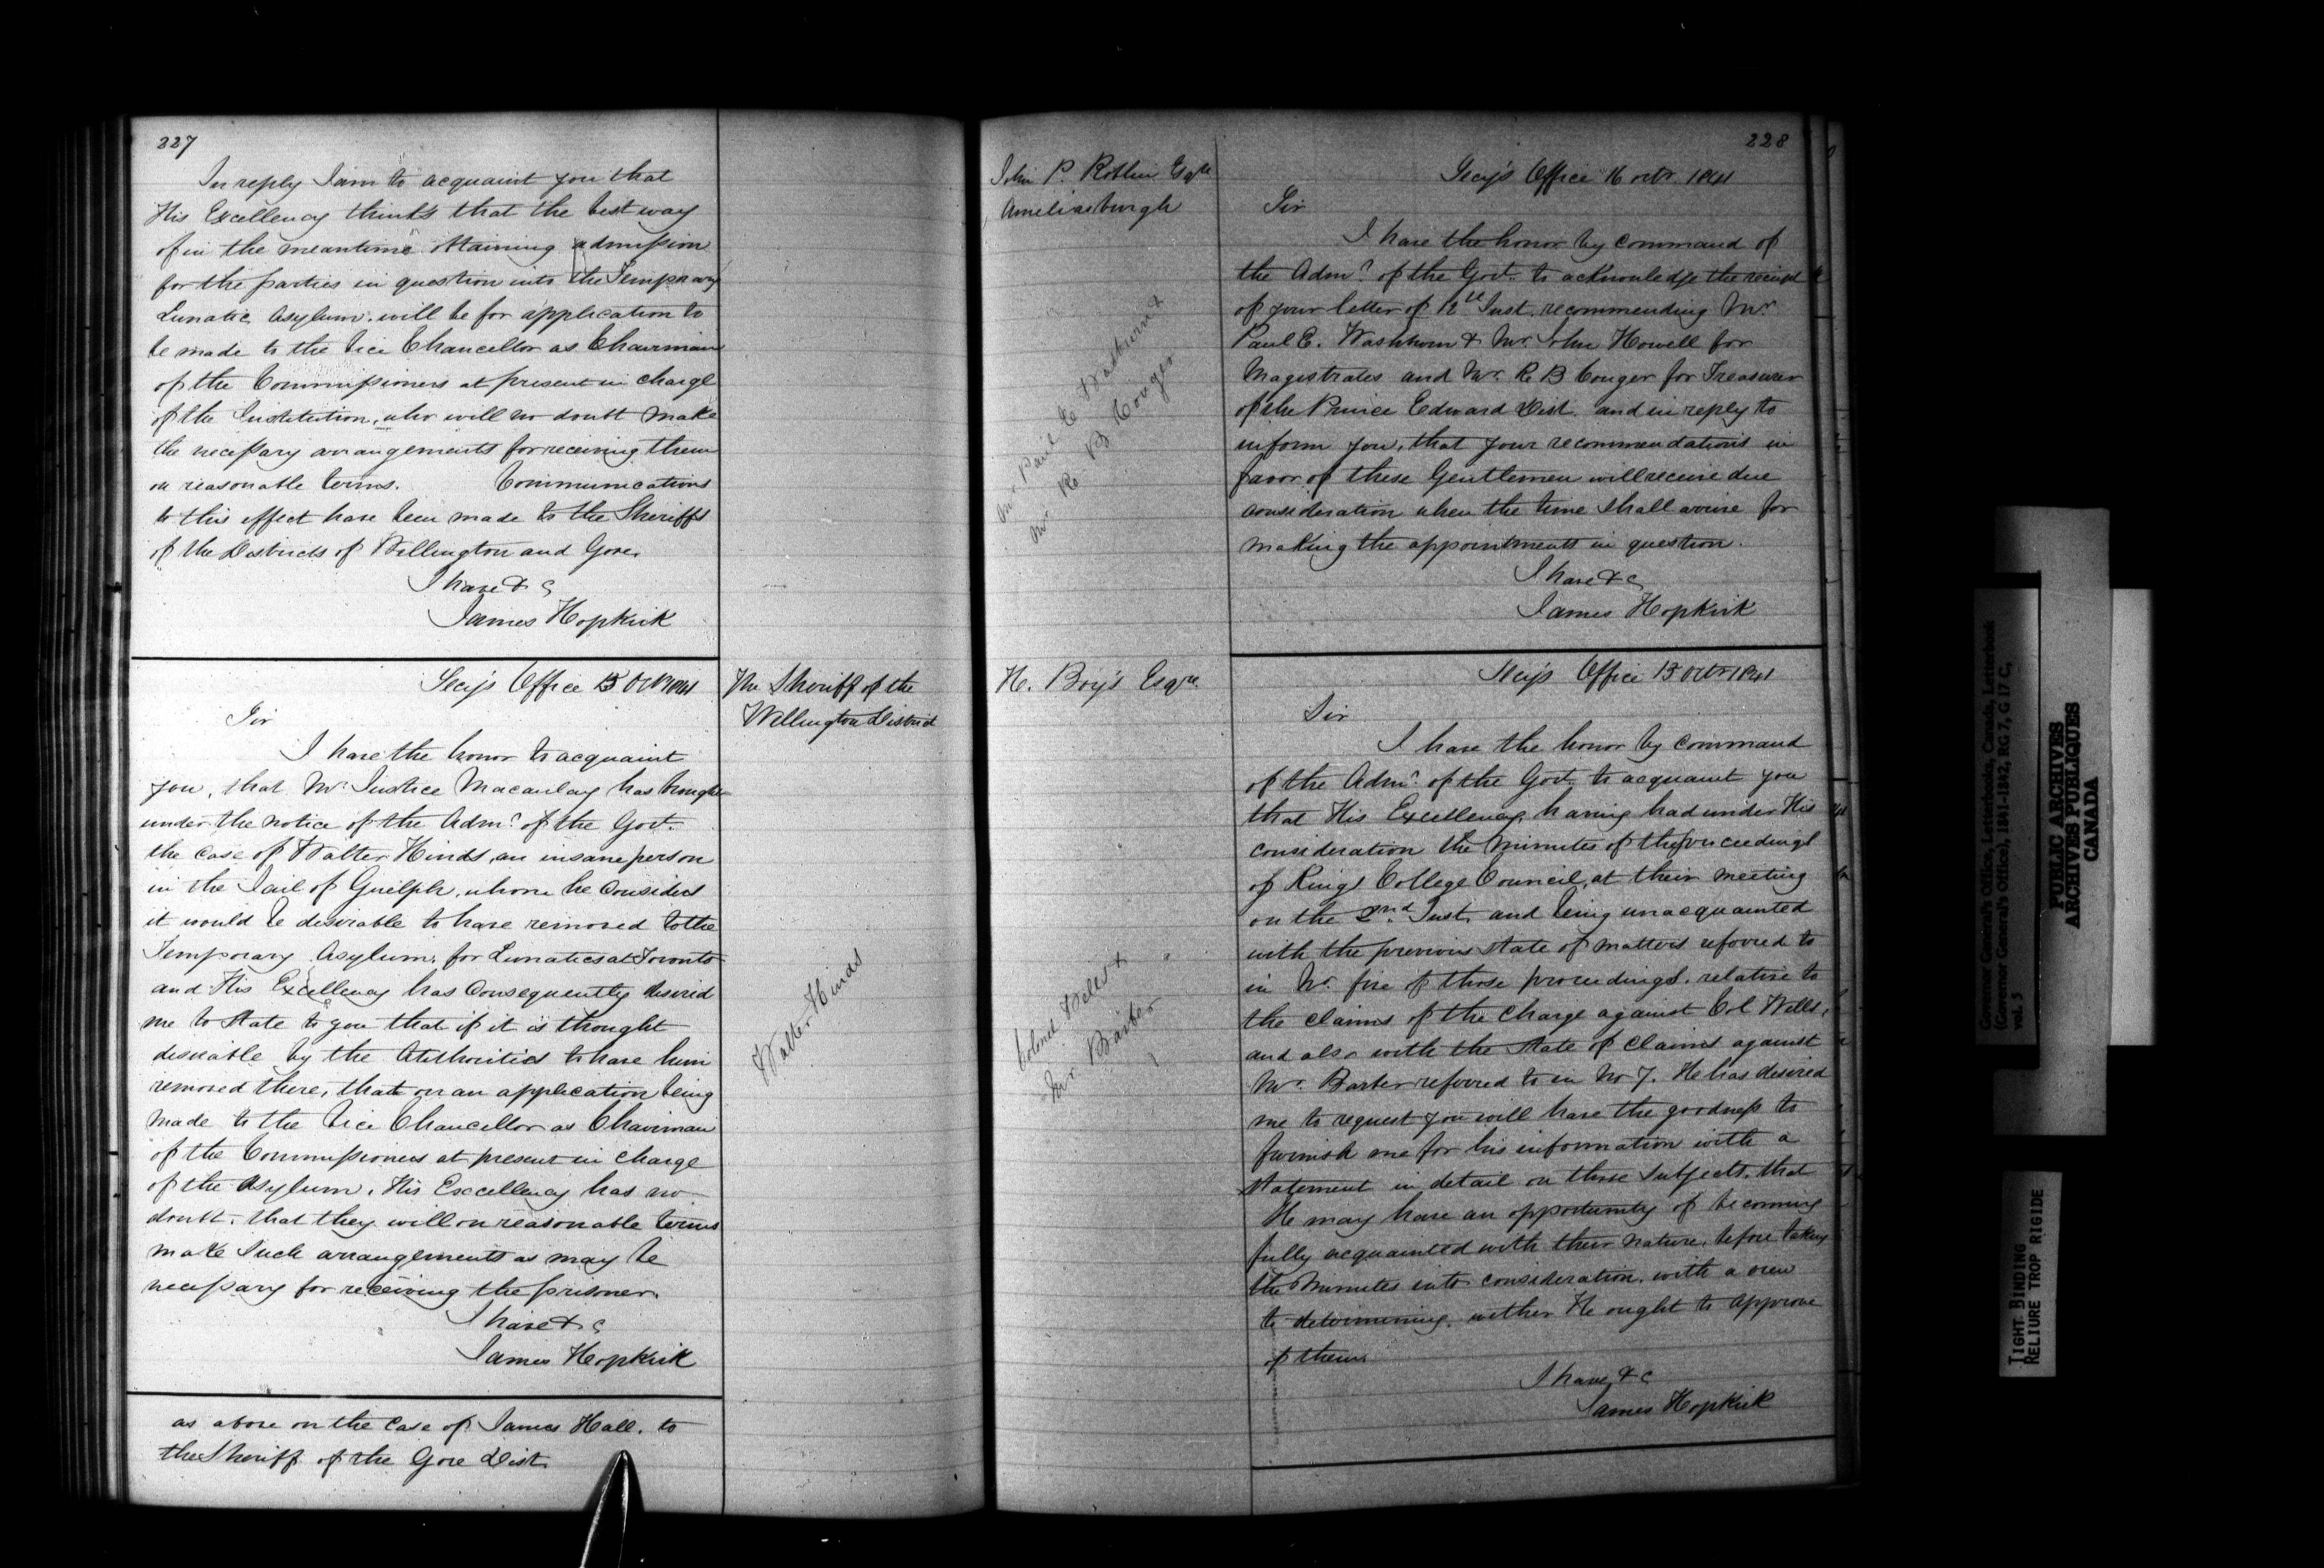 227
In reply I am to acquaint you that
His Excellency thinks that the best way
of in the meantime obtaining admission
for the parties in question into the Temporary
Lunatic Asylum, will be for application to
be made to the Vice Chancellor as Chairman
of the Commissioners at present in charge
of the Institution, who will no doubt make
the necessary arrangements for receiving them
on reasonable terms. Communications
to this effect have been made to the Sheriffs
of the Districts of Wellington and Gore.
I have & c
James Hopkirk
Secy's Office 15 Octr 1841
The Sheriff of the
Wellington District
Sir
I have the honor to acquaint
you, that Mr. Justice Macaulay has brought
under the notice of the Admr. of the Govt.
the case of Walter Hinds, an insane person
in the Jail of Guelph, whom he considers
it would be desirable to have removed to the
Temporary Asylum, for Lunatics at Toronto
and His Excellency has consequently desired
me to state to you that if it is thought
desirable by the Authorities to have him
removed there, that on an application being
made to the Vice Chancellor as Chairman
of the Commissioners at present in charge
of the Asylum, His Excellency has no
doubt, that they will on reasonable terms
make such arrangements as may be
necessary for receiving the prisoner.
I have & c
James Hopkirk
Walter Hinds
as above on the case of James Hall, to
the Sheriff of the Gore Dist.
228
John P. Roblin Esqre
Ameliasburgh
Secy's Office 16 octr. 1841
Sir
I have the honor by command of
the Admr. of the Govt. to acknowledge the receipt
of your letter of 12th Inst. recommending Mr.
Paul C. Washburn & Mr. John Howell for
Magistrates and Mr. R B Conger for Treasurer
of the Prince Edward Dist. and in reply to
inform you, that your recommendations in
favor of these Gentlemen will receive due
consideration when the time shall arrive for
making the appointments in question.
I have & c
James Hopkirk
Mr. Paul C Washburn &
Mr. R B Conger
H. Boy's Esqre.
Secy's Office 15 octr 1841
Sir
I have the honor by command
of the Admr. of the Govt. to acquaint you
that His Excellency, having had under His
consideration the Minutes of the proceedings
of Kings College Council, at their meeting
on the 2nd. Inst. and being unacquainted
with the previous state of matters referred to
in No. five of those proceedings, relative to
the claims of the Charge against Col Wells,
and also with the state of claims against
Mr. Barber referred to in No 7. He has desired
me to request you will have the goodness to
furnish me for his information with a
statement in detail on those subjects, that
He may have an opportunity of becoming
fully acquainted with their nature, before taking
the Minutes into consideration, with a view
to determining, wether He ought to approve
of them.
I have & c
James Hopkirk
Colonel Wells &
Mr. Barber
Governor General's Office, Letterbooks, Canada, Letterbook
(Governor General's Office), 1841-1842, RG 7, G 17 C,
vol. 5
PUBLIC ARCHIVES
ARCHIVES PUBLIQUES
CANADA
TIGHT BINDING
RELIURE TROP RIGIDE